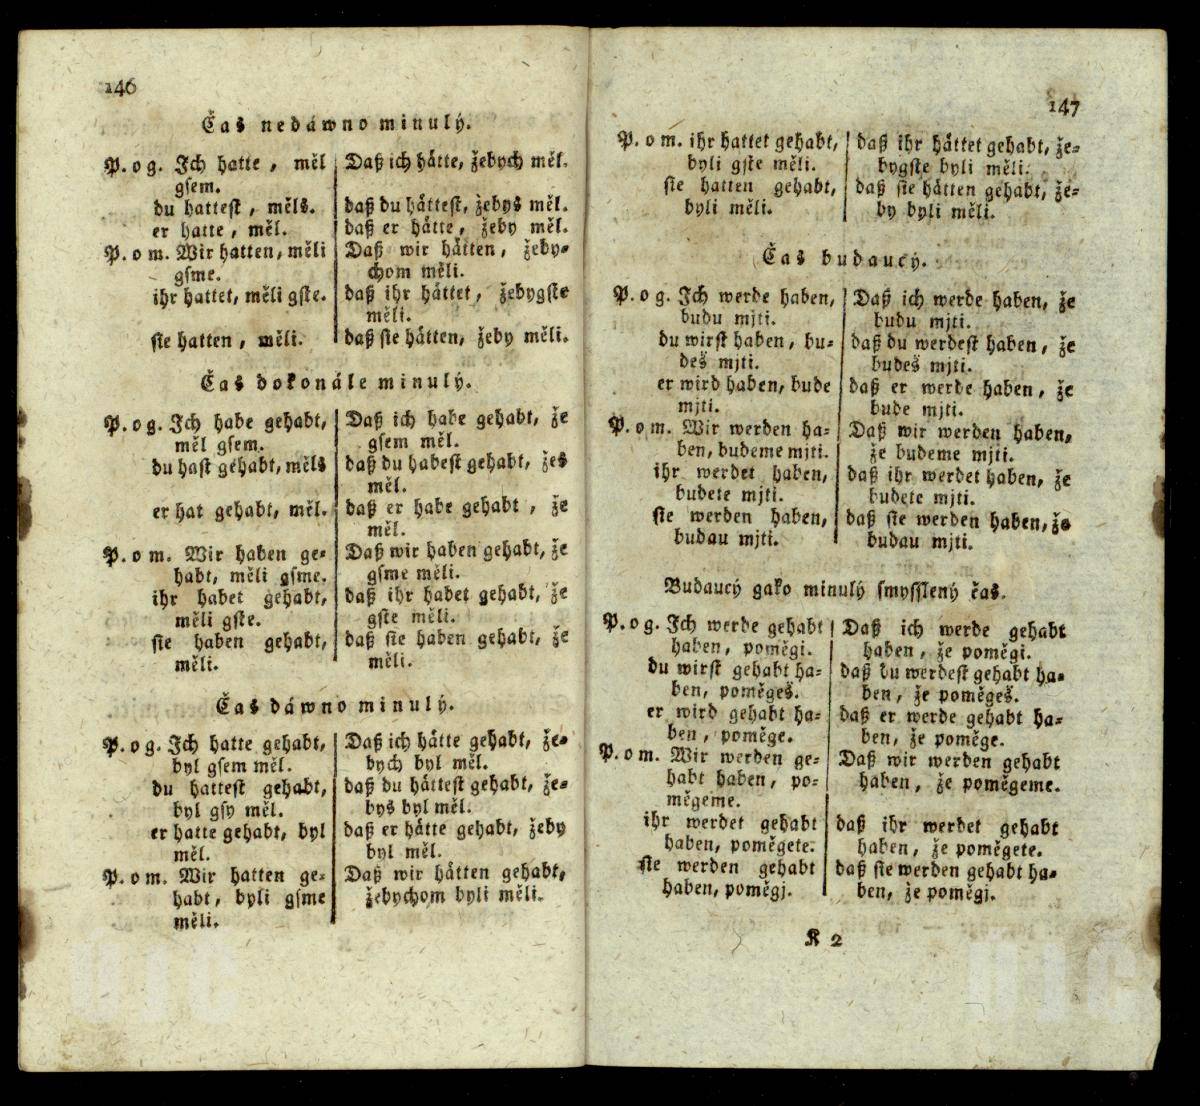 146
Čas nedáwno minulý.
P. o g. Ich hatte, měl
gsem.
du hattest, měls.
er hatte, měl.
P. o m. Wir hatten, měli
gsme.
ihr hattet, měli gste.
sie hatten, měli.
Daß ich hätte, žebych měl.
daß du hättest, žebys měl.
daß er hätte, žeby měl.
Daß wir hätten, žeby-
chom měli.
daß ihr hättet, žebygste
měli.
daß sie hätten, žeby měli.
Čas dokonále minulý.
P. o g. Ich habe gehabt,
měl gsem.
du hast gehabt, měls
er hat gehabt, měl.
P. o m. Wir haben ge-
habt, měli gsme.
ihr habet gehabt,
měli gste.
sie haben gehabt,
měli.
Daß ich habe gehabt, že
gsem měl.
daß du habest gehabt, žes
měl.
daß er habe gehabt, že
měl.
Daß wir haben gehabt, že
gsme měli.
daß ihr habet gehabt, že
gste měli.
daß sie haben gehabt, že
měli.
Čas dáwno minulý.
P. o g. Ich hatte gehabt,
byl gsem měl.
du hattest gehabt,
byl gsy měl.
er hatte gehabt, byl
měl.
P. o m. Wir hatten ge-
habt, byli gsme
měli.
Daß ich hätte gehabt, že-
bych byl měl.
daß du hättest gehabt, že-
bys byl měl.
daß er hätte gehabt, žeby
byl měl.
Daß wir hätten gehabt,
žebychom byli měli.
147
P. o m. ihr hattet gehabt,
byli gste měli.
sie hatten gehabt,
byli měli.
daß ihr hättet gehabt, že-
bygste byli měli.
daß sie hätten gehabt, že-
by byli měli.
Čas budaucý.
P. o g. Ich werde haben,
budu mjti.
du wirst haben, bu-
deš mjti.
er wird haben, bude
mjti.
P. o m. Wir werden ha-
ben, budeme mjti.
ihr werdet haben,
budete mjti.
sie werden haben,
budau mjti.
Daß ich werde haben, že
budu mjti.
daß du werdest haben, že
budeš mjti.
daß er werde haben, že
bude mjti.
Daß wir werden haben,
že budeme mjti.
daß ihr werdet haben, že
budete mjti.
daß sie werden haben, že
budau mjti.
Budaucý gako minulý smysslený čas.
P. o g. Ich werde gehabt
haben, poměgi.
du wirst gehabt ha-
ben, poměgeš.
er wird gehabt ha-
ben, poměge.
P. o m. Wir werden ge-
habt haben, po-
měgeme.
ihr werdet gehabt
haben, poměgete.
sie werden gehabt
haben, poměgj.
Daß ich werde gehabt
haben, že poměgi.
daß du werdest gehabt ha-
ben, že poměgeš.
daß er werde gehabt ha-
ben, že poměge.
Daß wir werden gehabt
haben, že poměgeme.
daß ihr werdet gehabt
haben, že poměgete.
daß sie werden gehabt ha-
ben, že poměgj.
K 2